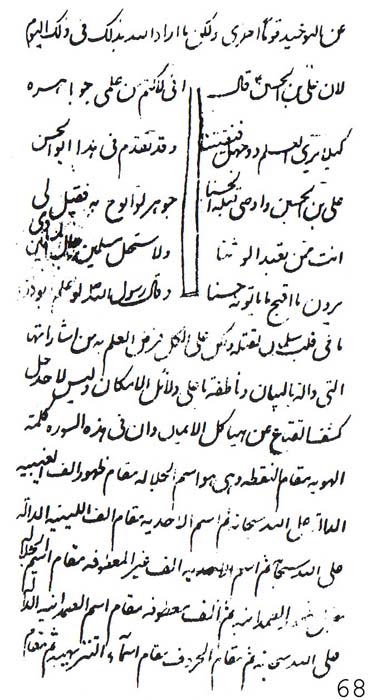 عن التوحيد قوما اخرى ولكن ما اراد الله بذلك فى ذلك اليوم
لان على بن الحسين قال انى لاكتم من علمى جواهره
كيلا يرى العلم ذو جهل فيفتتنا وقد تقدم فى هذا ابو الحسن
على بن الحسين واوصى قبله الحسنا جوهر لو ابوح به لقيل لى
انت ممن يعبد الوثنا ولاستحل مسلمين
يرون اقبح ما ياتونه حسنا وقال رسول الله لو علم بوذر
ما فى قلب سلمان لقتله وكل على الكل فرض العلم به من اشاراتها
التى دالة بالبيان وناطقة باعلى دلائل الامكان وليس لاحد حل
كشف القناع عن هياكل الاعيان وان فى هذه السورة كلمة
الهويه مقام النقطه وهى هو اسم الجلاله مقام ظهور الف الغيبيه
على الله سبحانه ثم اسم الاحديه مقام الف اللينيه الداله
على الله سبحانه ثم اسم الف غير المعطوفه مقام اسم الجلاله
الصمدانيه ثم الف معطوفه مقام اسم الصمدانيه
على الله سبحانه ثم مقام الحروف مقام اسماء التنزيهيه ثم مقام
68